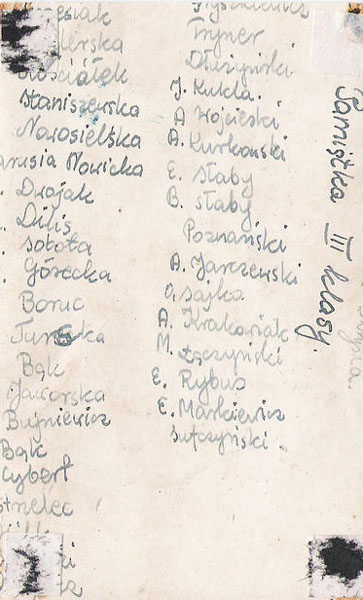 Kościółek
Staniszewska
Nowosielska
Nowicka
Dwojak
Dilis
Sobota
Górecka
Boruc
Bąk
Jaworska
Bujniewicz
Bąk
Cybert
Fryner
Dłużyński
J. Kukla.
A Wojcieski
A. Kurkowski
E. Słaby
B. Słaby
Poznański
A. Jarczewski
O. Sojka
A. Krakowiak
M. Łączyński
E. Rybus
E. Markiewicz
Sulczyński.
Pamiątka III klasy.